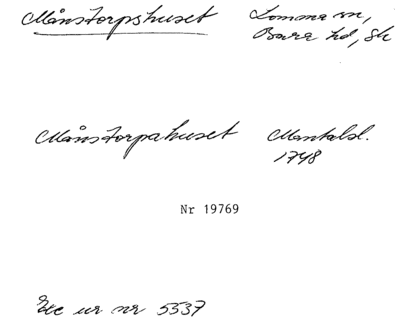 Månstorpshuset Lomma sn,
Bara hd, Sk
Månstorpahuset Mantalsl.
1748
Nr 19769
Exc ur nr 5537